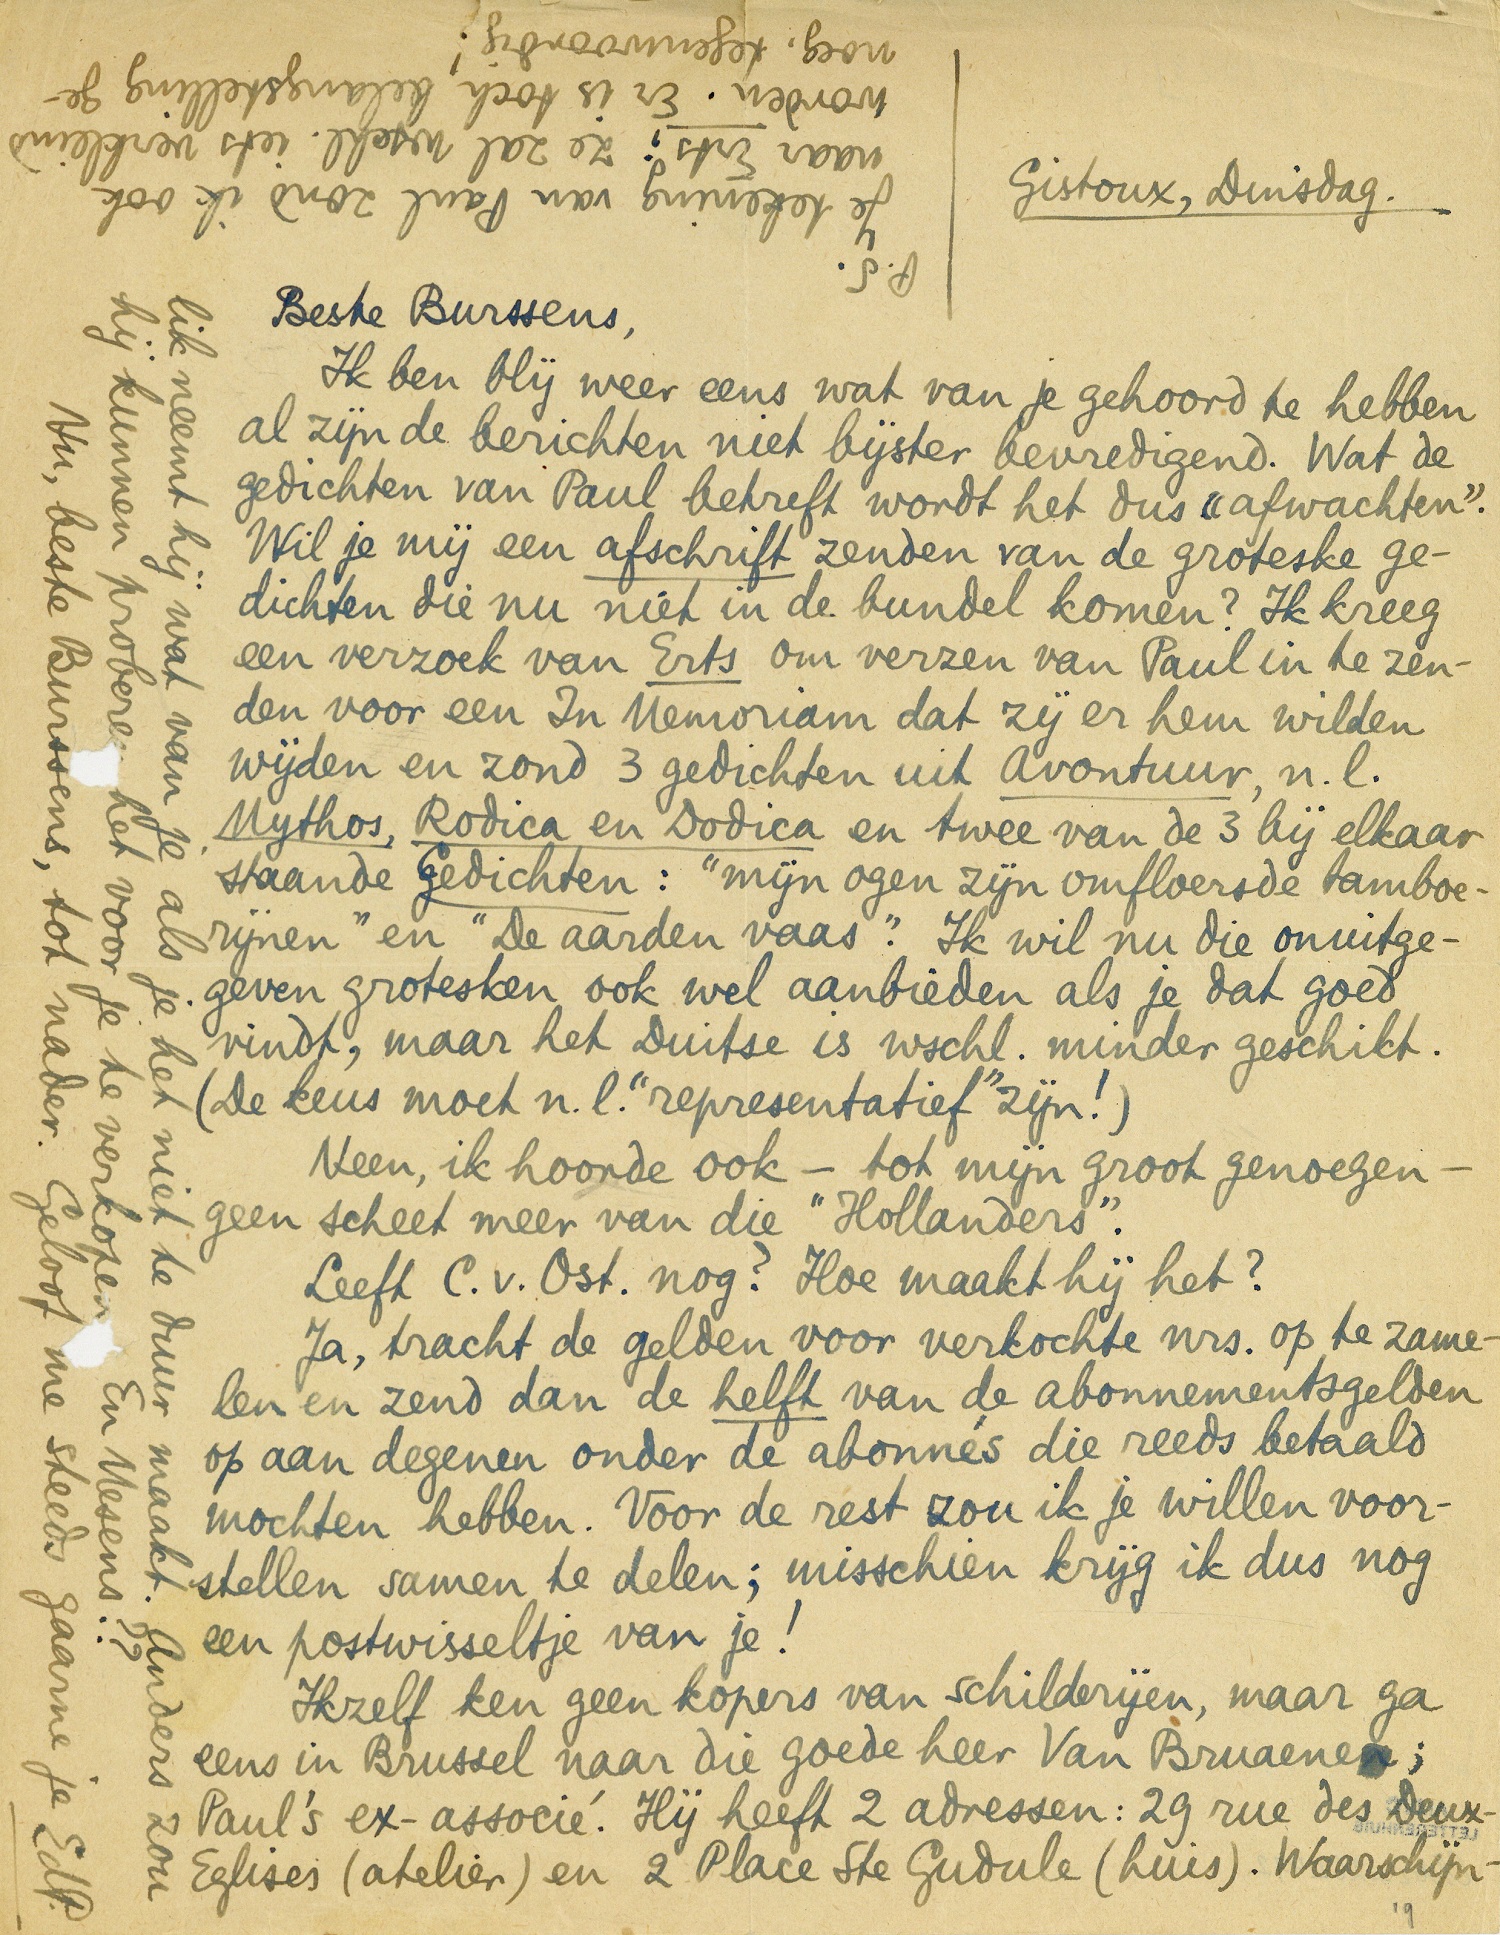 Gistoux, Dinsdag.
Beste Burssens,
Ik ben blij weer eens wat van je gehoord te hebben
al zijn de berichten niet bijster bevredigend. Wat de
gedichten van Paul betreft wordt het dus "afwachten".
Wil je mij een afschrift zenden van de groteske ge-
dichten die nu niet in de bundel komen? Ik kreeg
een verzoek van Erts om verzen van Paul in te zen-
den voor een In Memoriam dat zij er hem wilden
wijden en zond 3 gedichten uit Avontuur, n.l.
Mythos, Rodica en Dodica en twee van de 3 bij elkaar
staande Gedichten: "mijn ogen zijn omfloersde tamboe-
rijnen" en "De aarden vaas". Ik wil nu die onuitge-
geven grotesken ook wel aanbieden als je dat goed
vindt, maar het Duitse is wschl. minder geschikt.
(De keus moet n.l. "representatief" zijn!)
Neen, ik hoorde ook – tot mijn groot genoegen –
geen scheet meer van die "Hollanders".
Leeft C. v. Ost. nog? Hoe maakt hij het?
Ja, tracht de gelden voor verkochte nrs. op te zame-
len en zend dan de helft van de abonnementsgelden
op aan degenen onder de abonnés die reeds betaald
mochten hebben. Voor de rest zou ik je willen voor-
stellen samen te delen; misschien krijg ik dus nog
een postwisseltje van je!
Ikzelf ken geen kopers van schilderijen, maar ga
eens in Brussel naar die goede heer Van Bruaene;
Paul's ex-associé. Hij heeft 2 adressen: 29 rue des Deux-
Eglises (atelier) en 2 Place Ste Gudule (huis). Waarschijn-
lik neemt hij wat van je als je het niet te duur maakt. Anders zou
hij kunnen proberen het voor je te verkopen. En Mesens??
Nu, beste Burssens, tot nader. Geloof me steeds gaarne je EdP.
P.S.
Je tekening van Paul zond ik ook
naar Erts; ze zal wschl. iets verkleind
worden. Er is toch belangstelling ge-
noeg, tegenwoordig!
LETTERENHUIS
19